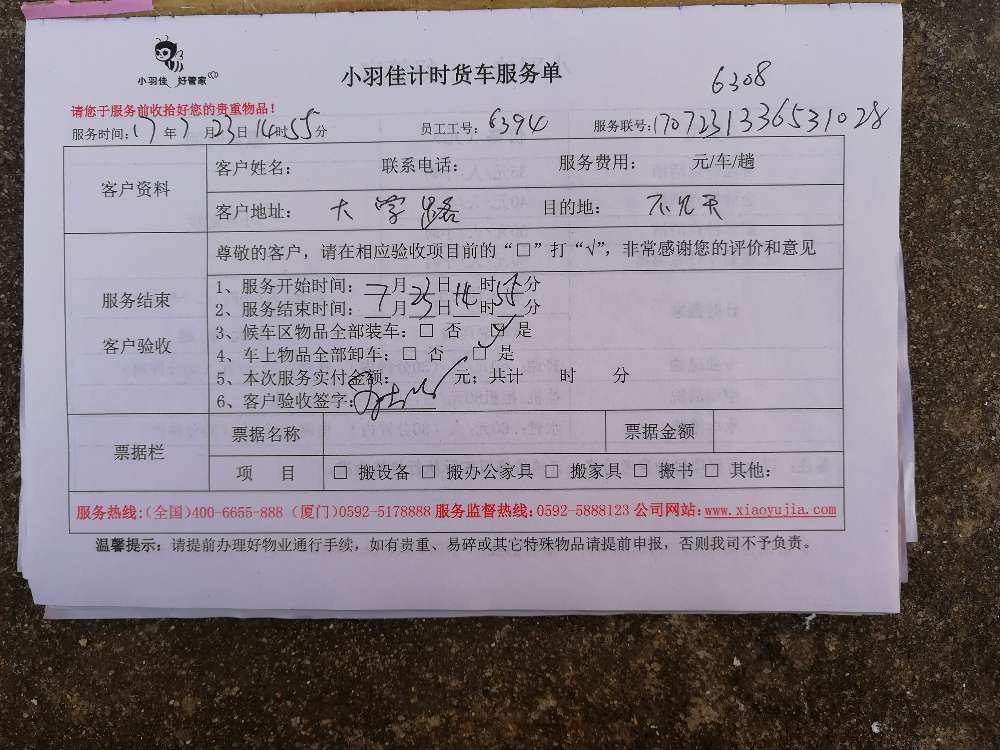 小羽佳 好管家
小羽佳计时货车服务单
6308
请您于服务前收拾好您的贵重物品！
服务时间：17年7月23日14时55分 员工工号：6394 服务联号：1707231336531028
客户资料
客户姓名： 联系电话： 服务费用： 元/车/趟
客户地址： 大学路 目的地：
服务结束
客户验收
尊敬的客户，请在相应验收项目前的“□”打“√”，非常感谢您的评价和意见
1、服务开始时间： 月 日 时 分
2、服务结束时间：7月23日14时55分
3、候车区物品全部装车：□ 否 ☑ 是
4、车上物品全部卸车：□ 否 □ 是
5、本次服务实付金额： 元；共计 时 分
6、客户验收签字：
票据栏
票据名称 票据金额
项 目 □ 搬设备 □ 搬办公家具 □ 搬家具 □ 搬书 □ 其他：
服务热线：(全国)400-6655-888 (厦门)0592-5178888 服务监督热线：0592-5888123 公司网站：www.xiaoyujia.com
温馨提示：请提前办理好物业通行手续，如有贵重、易碎或其它特殊物品请提前申报，否则我司不予负责。